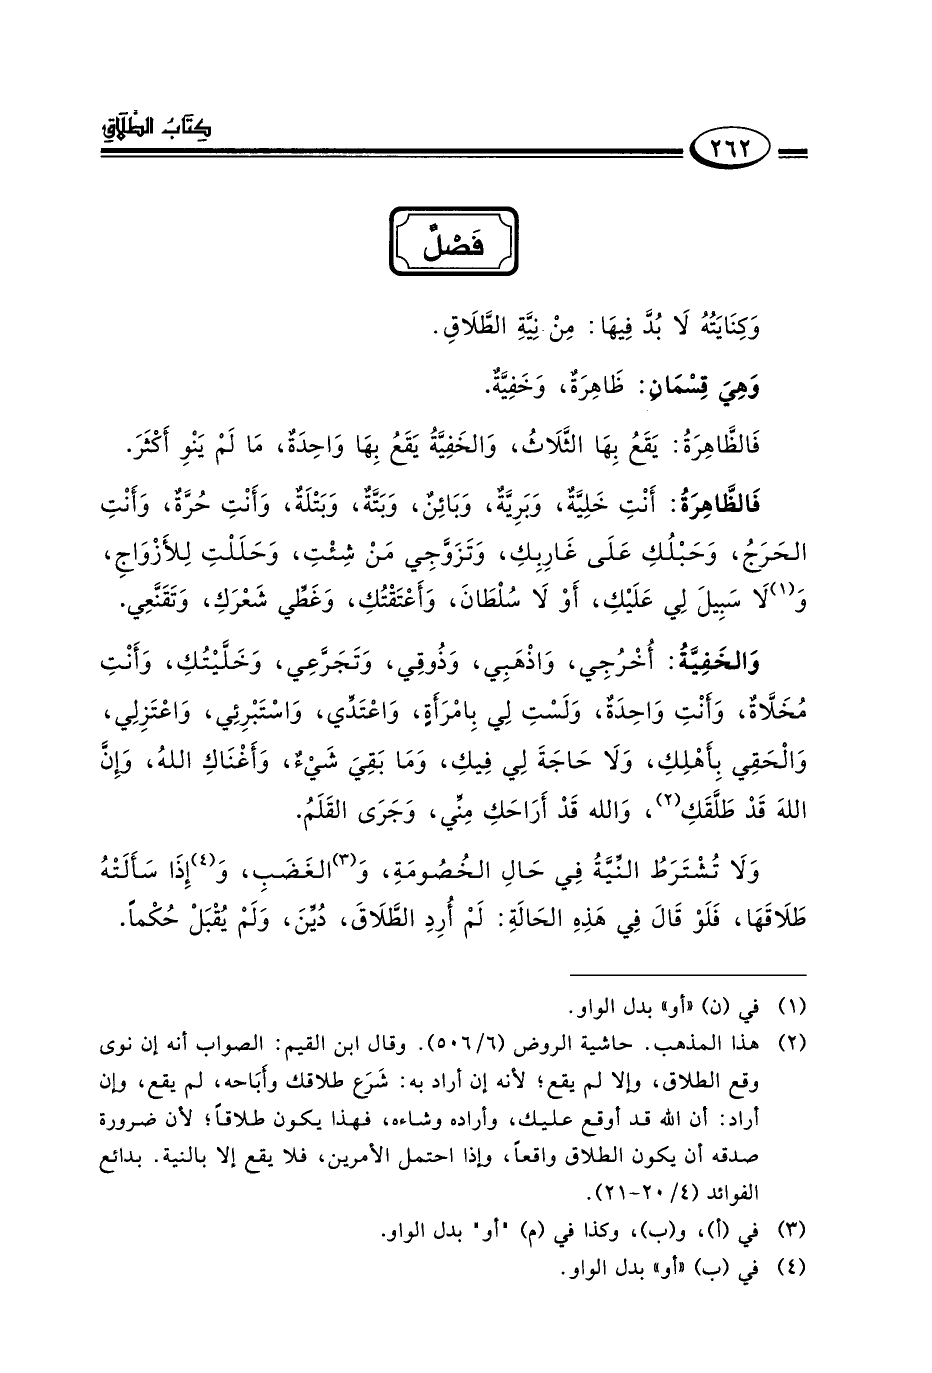 كِتَابُ الطَّلَاقِ
٢٦٢
فَصْلٌ
وَكِنَايَتُهُ لَا بُدَّ فِيهَا: مِنْ نِيَّةِ الطَّلَاقِ.
وَهِيَ قِسْمَانِ: ظَاهِرَةٌ، وَخَفِيَّةٌ.
فَالظَّاهِرَةُ: يَقَعُ بِهَا الثَّلَاثُ، وَالخَفِيَّةُ يَقَعُ بِهَا وَاحِدَةٌ، مَا لَمْ يَنْوِ أَكْثَرَ.
فَالظَّاهِرَةُ: أَنْتِ خَلِيَّةٌ، وَبَرِيَّةٌ، وَبَائِنٌ، وَبَتَّةٌ، وَبَتْلَةٌ، وَأَنْتِ حُرَّةٌ، وَأَنْتِ
الحَرَجُ، وَحَبْلُكِ عَلَى غَارِبِكِ، وَتَزَوَّجِي مَنْ شِئْتِ، وَحَلَلْتِ لِلأَزْوَاجِ،
وَ(١)لَا سَبِيلَ لِي عَلَيْكِ، أَوْ لَا سُلْطَانَ، وَأَعْتَقْتُكِ، وَغَطِّي شَعْرَكِ، وَتَقَنَّعِي.
وَالخَفِيَّةُ: أُخْرُجِي، وَاذْهَبِي، وَذُوقِي، وَتَجَرَّعِي، وَخَلَّيْتُكِ، وَأَنْتِ
مُخَلَّاةٌ، وَأَنْتِ وَاحِدَةٌ، وَلَسْتِ لِي بِامْرَأَةٍ، وَاعْتَدِّي، وَاسْتَبْرِئِي، وَاعْتَزِلِي،
وَالْحَقِي بِأَهْلِكِ، وَلَا حَاجَةَ لِي فِيكِ، وَمَا بَقِيَ شَيْءٌ، وَأَغْنَاكِ اللهُ، وَإِنَّ
اللهَ قَدْ طَلَّقَكِ(٢)، وَالله قَدْ أَرَاحَكِ مِنِّي، وَجَرَى القَلَمُ.
وَلَا تُشْتَرَطُ النِّيَّةُ فِي حَالِ الخُصُومَةِ، وَ(٣)الغَضَبِ، وَ(٤)إِذَا سَأَلَتْهُ
طَلَاقَهَا، فَلَوْ قَالَ فِي هَذِهِ الحَالَةِ: لَمْ أُرِدِ الطَّلَاقَ، دُيِّنَ، وَلَمْ يُقْبَلْ حُكْماً.
(١) في (ن) «أو» بدل الواو.
(٢) هذا المذهب. حاشية الروض (٥٠٦/٦). وقال ابن القيم: الصواب أنه إن نوى
وقع الطلاق، وإلا لم يقع؛ لأنه إن أراد به: شَرَع طلاقك وأَبَاحه، لم يقع، وإن
أراد: أن الله قد أوقع عليك، وأراده وشاءه، فهذا يكون طلاقاً؛ لأن ضرورة
صدقه أن يكون الطلاق واقعاً، وإذا احتمل الأمرين، فلا يقع إلا بالنية. بدائع
الفوائد (٢٠/٤-٢١).
(٣) في (أ)، و(ب)، وكذا في (م) "أو" بدل الواو.
(٤) في (ب) «أو» بدل الواو.